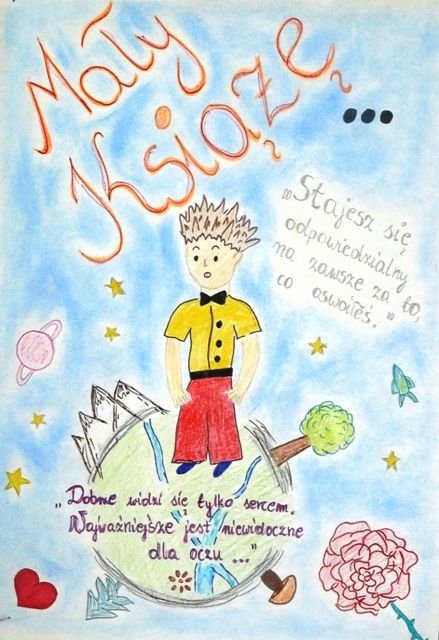 Mały
Książę ...
„Stajesz się
odpowiedzialny
na zawsze za to,
co oswoiłeś."
„Dobrze widzi się tylko sercem.
Najważniejsze jest niewidoczne
dla oczu ..."